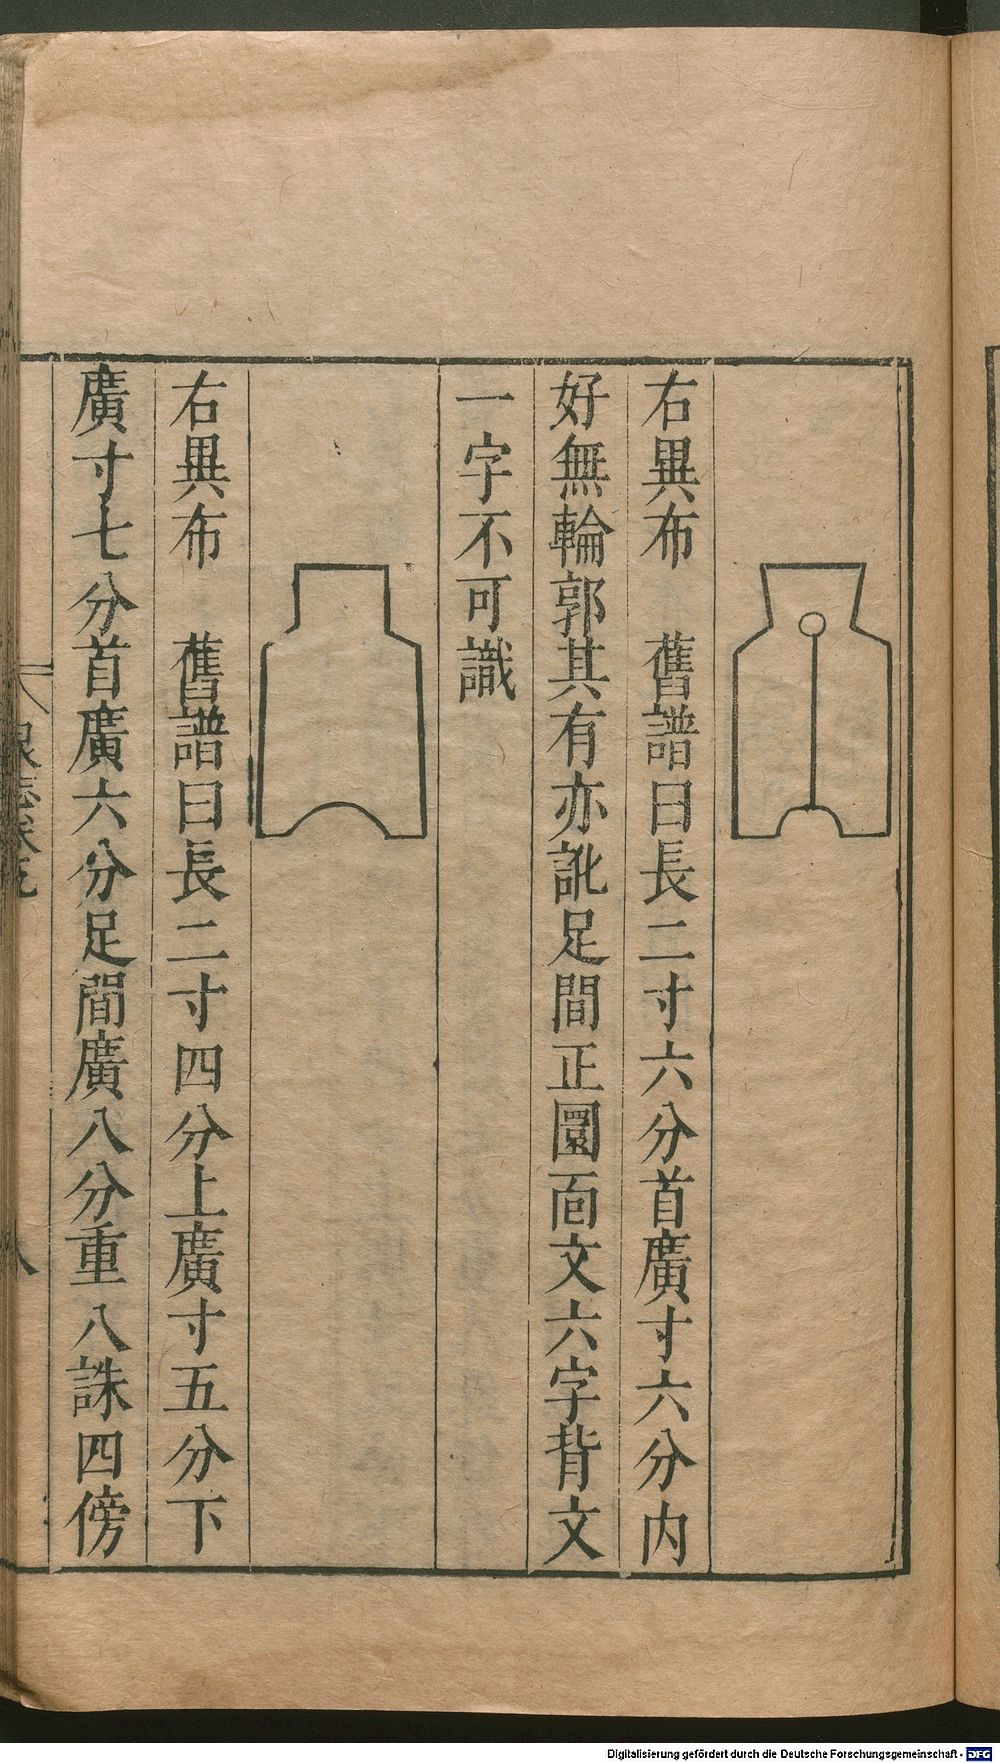 右異布　舊譜曰長二寸六分首廣寸六分内
好無輪郭其有亦訛足間正圜面文六字背文
一字不可識
右異布　舊譜曰長二寸四分上廣寸五分下
廣寸七分首廣六分足間廣八分重八誅四傍
八
Digitalisierung gefördert durch die Deutsche Forschungsgemeinschaft - DFG